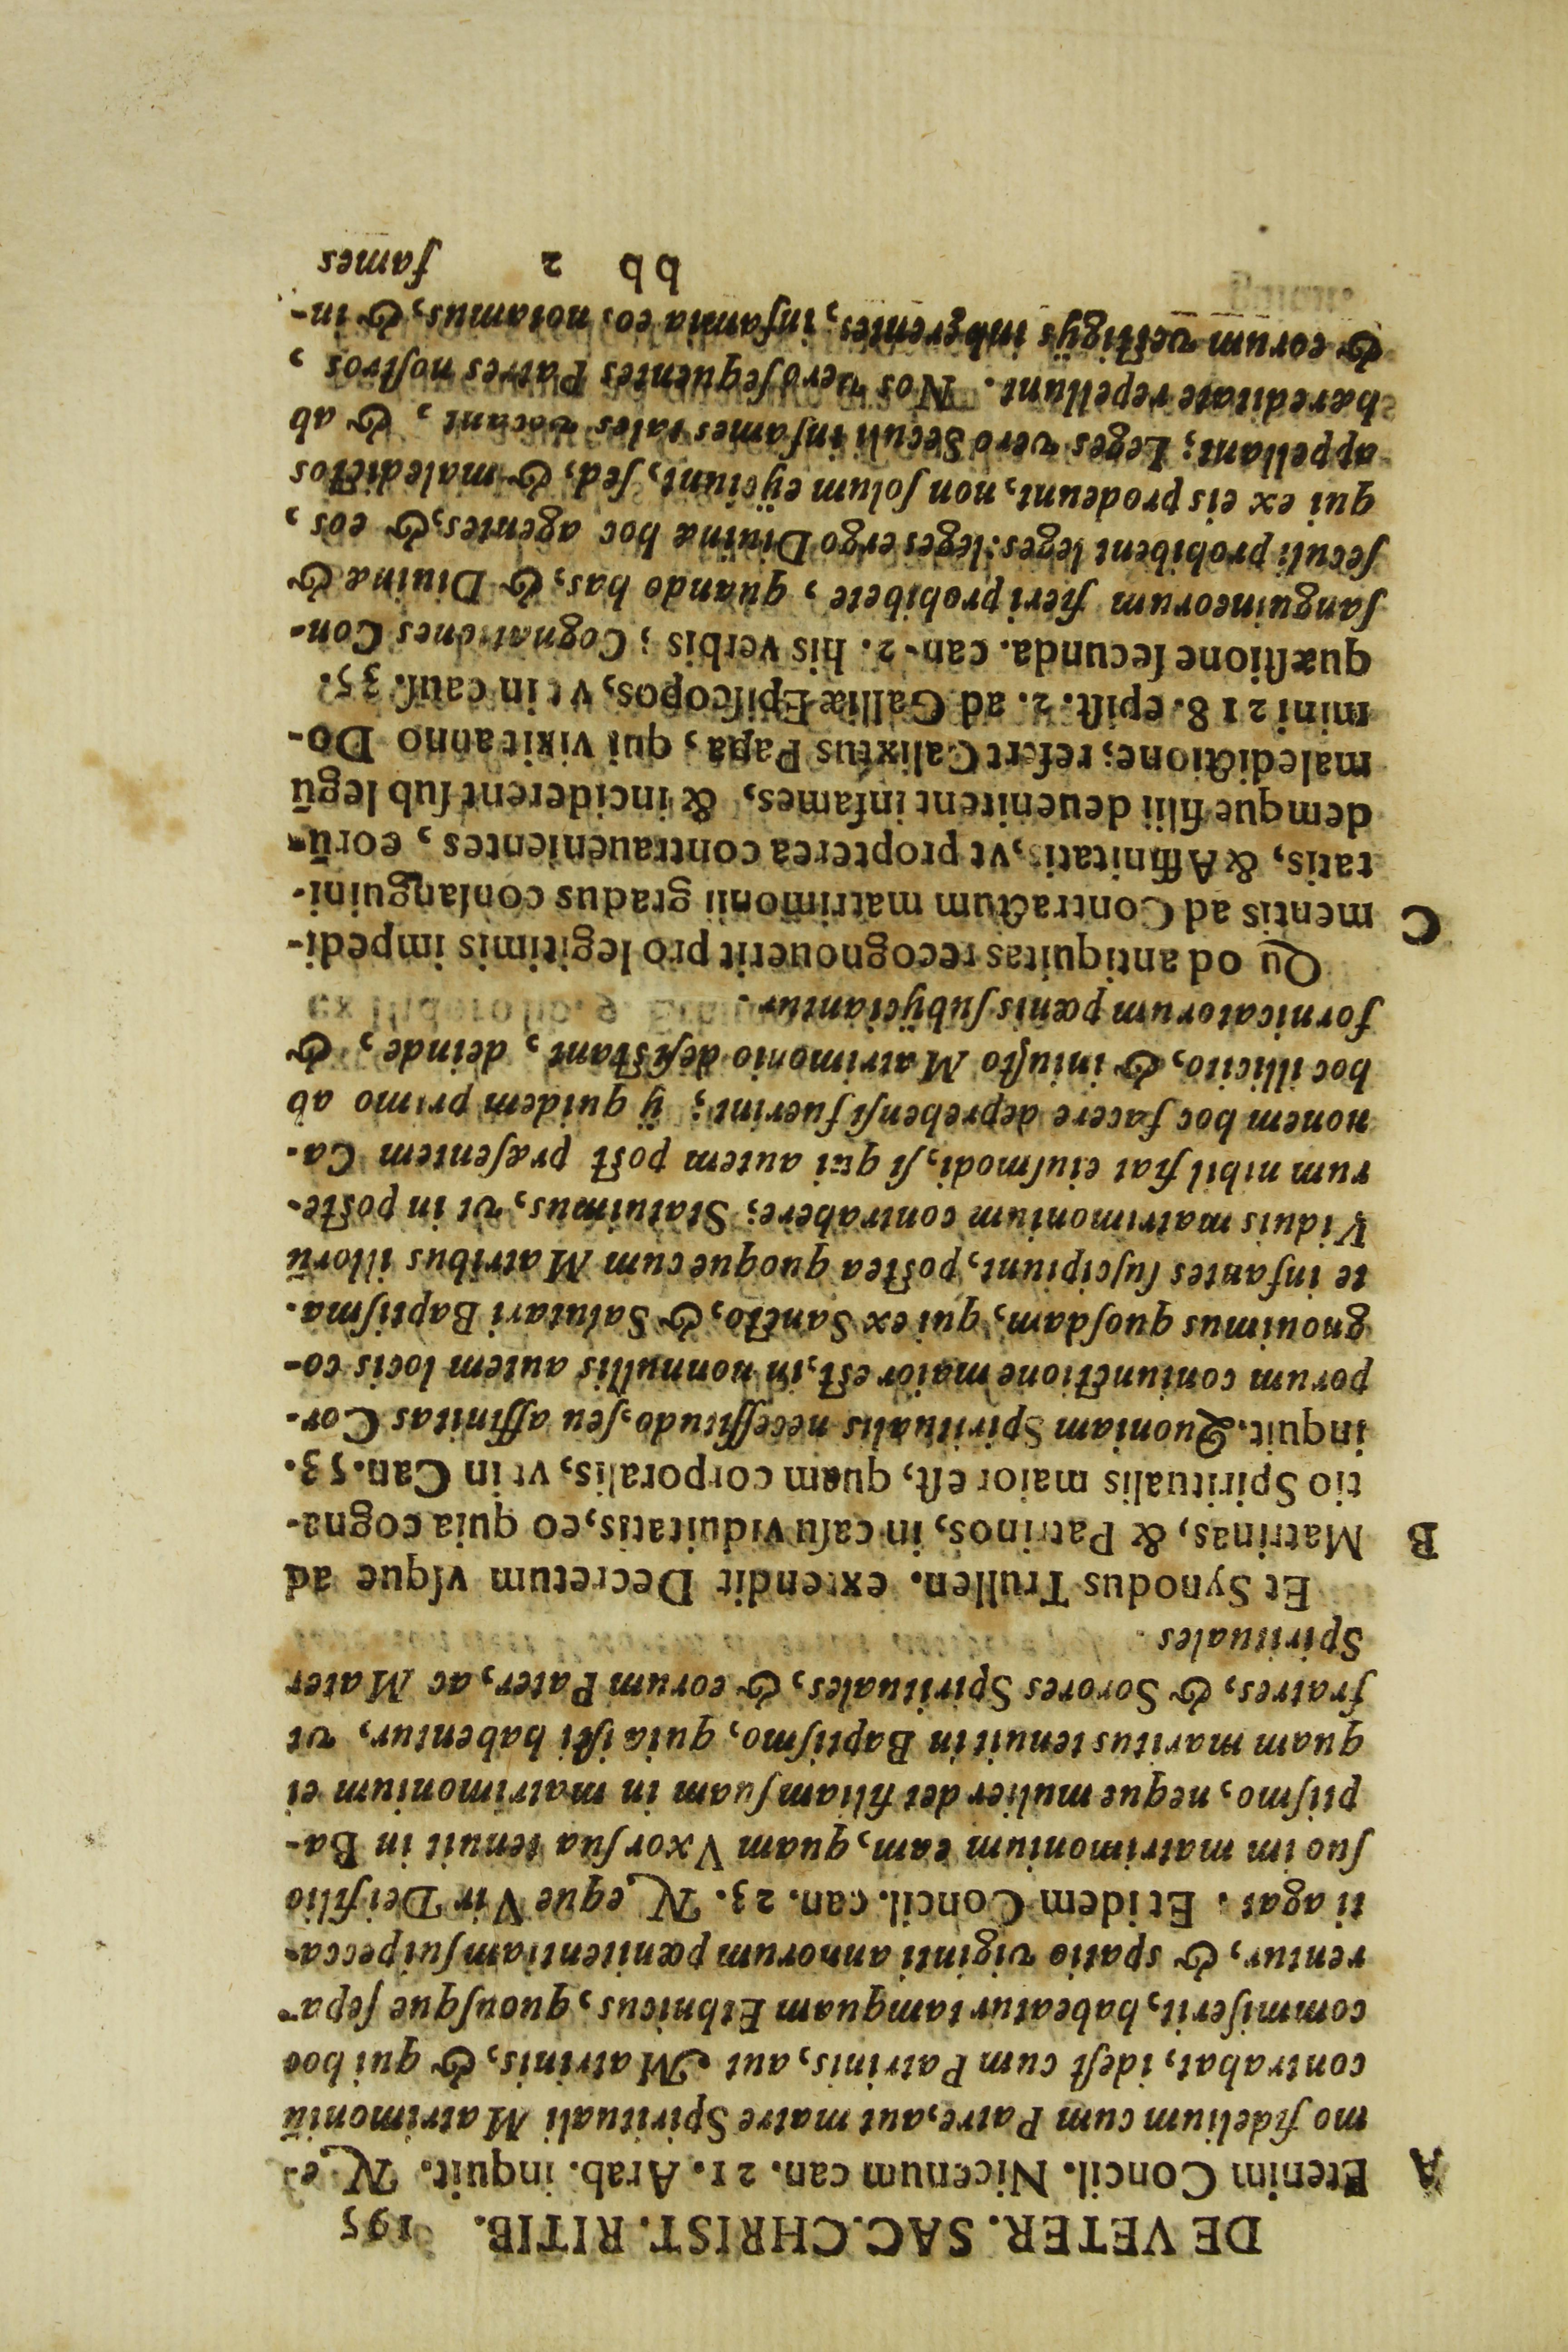 DE VETER. SAC. CHRIST. RITIB. 195
A Etenim Concil. Nicenum can. 21. Arab. inquit. Ne-
mo fidelium cum Patre, aut matre Spirituali Matrimoniũ
contrahat, idest cum Patrinis, aut Matrinis, & qui hoc
commiserit, habeatur tamquam Ethnicus, quousque sepa-
rentur, & spatio viginti annorum pœnitentiam sui pecca-
ti agat. Et idem Concil. can. 23. Neque Vir Dei filio
suo im matrimonium eam, quam Vxor sua tenuit in Ba-
ptismo, neque mulier det filiam suam in matrimonium ei
quam maritus tenuit in Baptismo, quia isti habentur, vt
fratres, & Sorores Spirituales, & eorum Pater, ac Mater
Spirituales.
Et Synodus Trullen. extendit Decretum vsque ad
B Matrinas, & Patrinos, in casu viduitatis, eo quia cogna-
tio Spiritualis maior est, quam corporalis, vt in Can. 53.
inquit. Quoniam Spiritualis necessitudo, seu affinitas Cor-
porum coniunctione maior est, in nonnullis autem locis co-
gnouimus quosdam, qui ex Sancto, & Salutari Baptisma-
te infantes suscipiunt, postea quoque cum Matribus illorũ
Viduis matrimonium contrahere; Statuimus, vt in poste-
rum nihil fiat eiusmodi, si qui autem post præsentem Ca-
nonem hoc facere deprehensi fuerint; ij quidem primo ab
hoc illicito, & iniusto Matrimonio desistant, deinde, &
fornicatorum pœnis subijciantur.
Qu od antiquitas recognouerit pro legitimis impedi-
C mentis ad Contractum matrimonii gradus consanguini-
tatis, & Affinitatis, vt propterea contrauenientes, eorũ-
demque filii deuenirent infames, & inciderent sub legũ
maledictione; refert Calixtus Papa, qui vixit anno Do-
mini 218. epist. 2. ad Galliæ Episcopos, vt in caus. 35.
quæstione secunda. can. 2. his verbis; Cognationes Con-
sanguineorum fieri prohibete, quando has, & Diuinæ &
seculi prohibent leges: leges ergo Diuinæ hoc agentes, & eos,
qui ex eis prodeunt, non solum eijciunt, sed, & maledictos
appellant; Leges vero Seculi infames tales vocant, & ab
hæreditate repellunt. Nos vero sequentes Patres nostros,
& eorum vestigijs inhærentes, infamia eos notamus, & in-
bb 2 fames